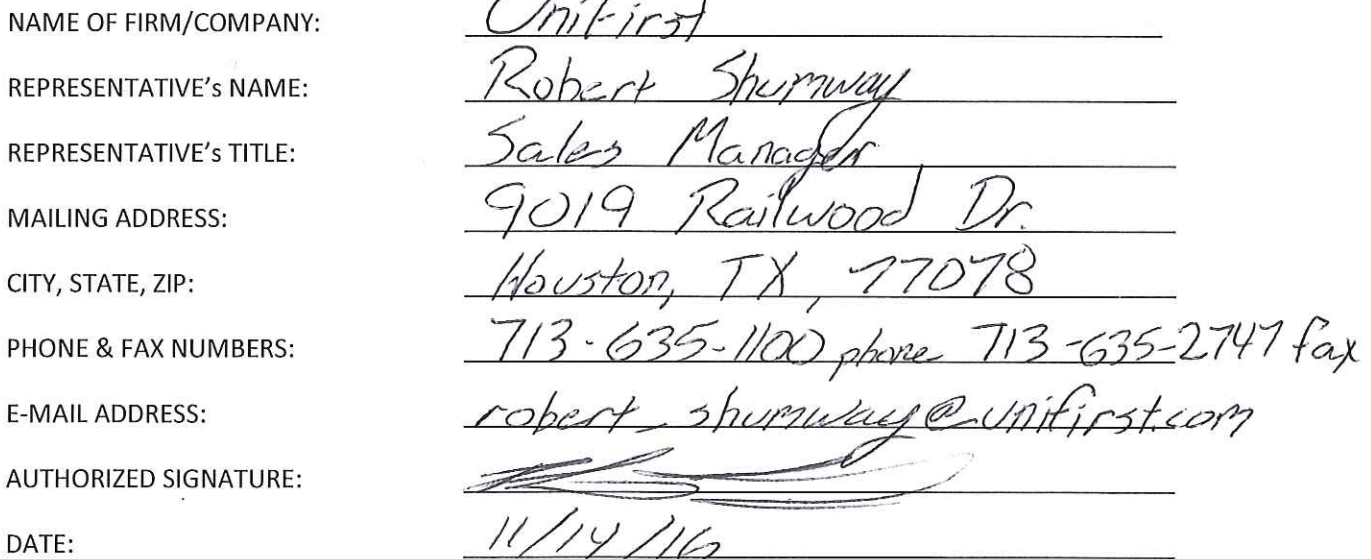 NAME OF FIRM/COMPANY: UniFirst
REPRESENTATIVE's NAME: Robert Shumway
REPRESENTATIVE's TITLE: Sales Manager
MAILING ADDRESS: 9019 Railwood Dr.
CITY, STATE, ZIP: Houston, TX, 77078
PHONE & FAX NUMBERS: 713-635-1100 phone 713-635-2747 fax
E-MAIL ADDRESS: robert_shumway@unifirst.com
AUTHORIZED SIGNATURE:
DATE: 11/14/16